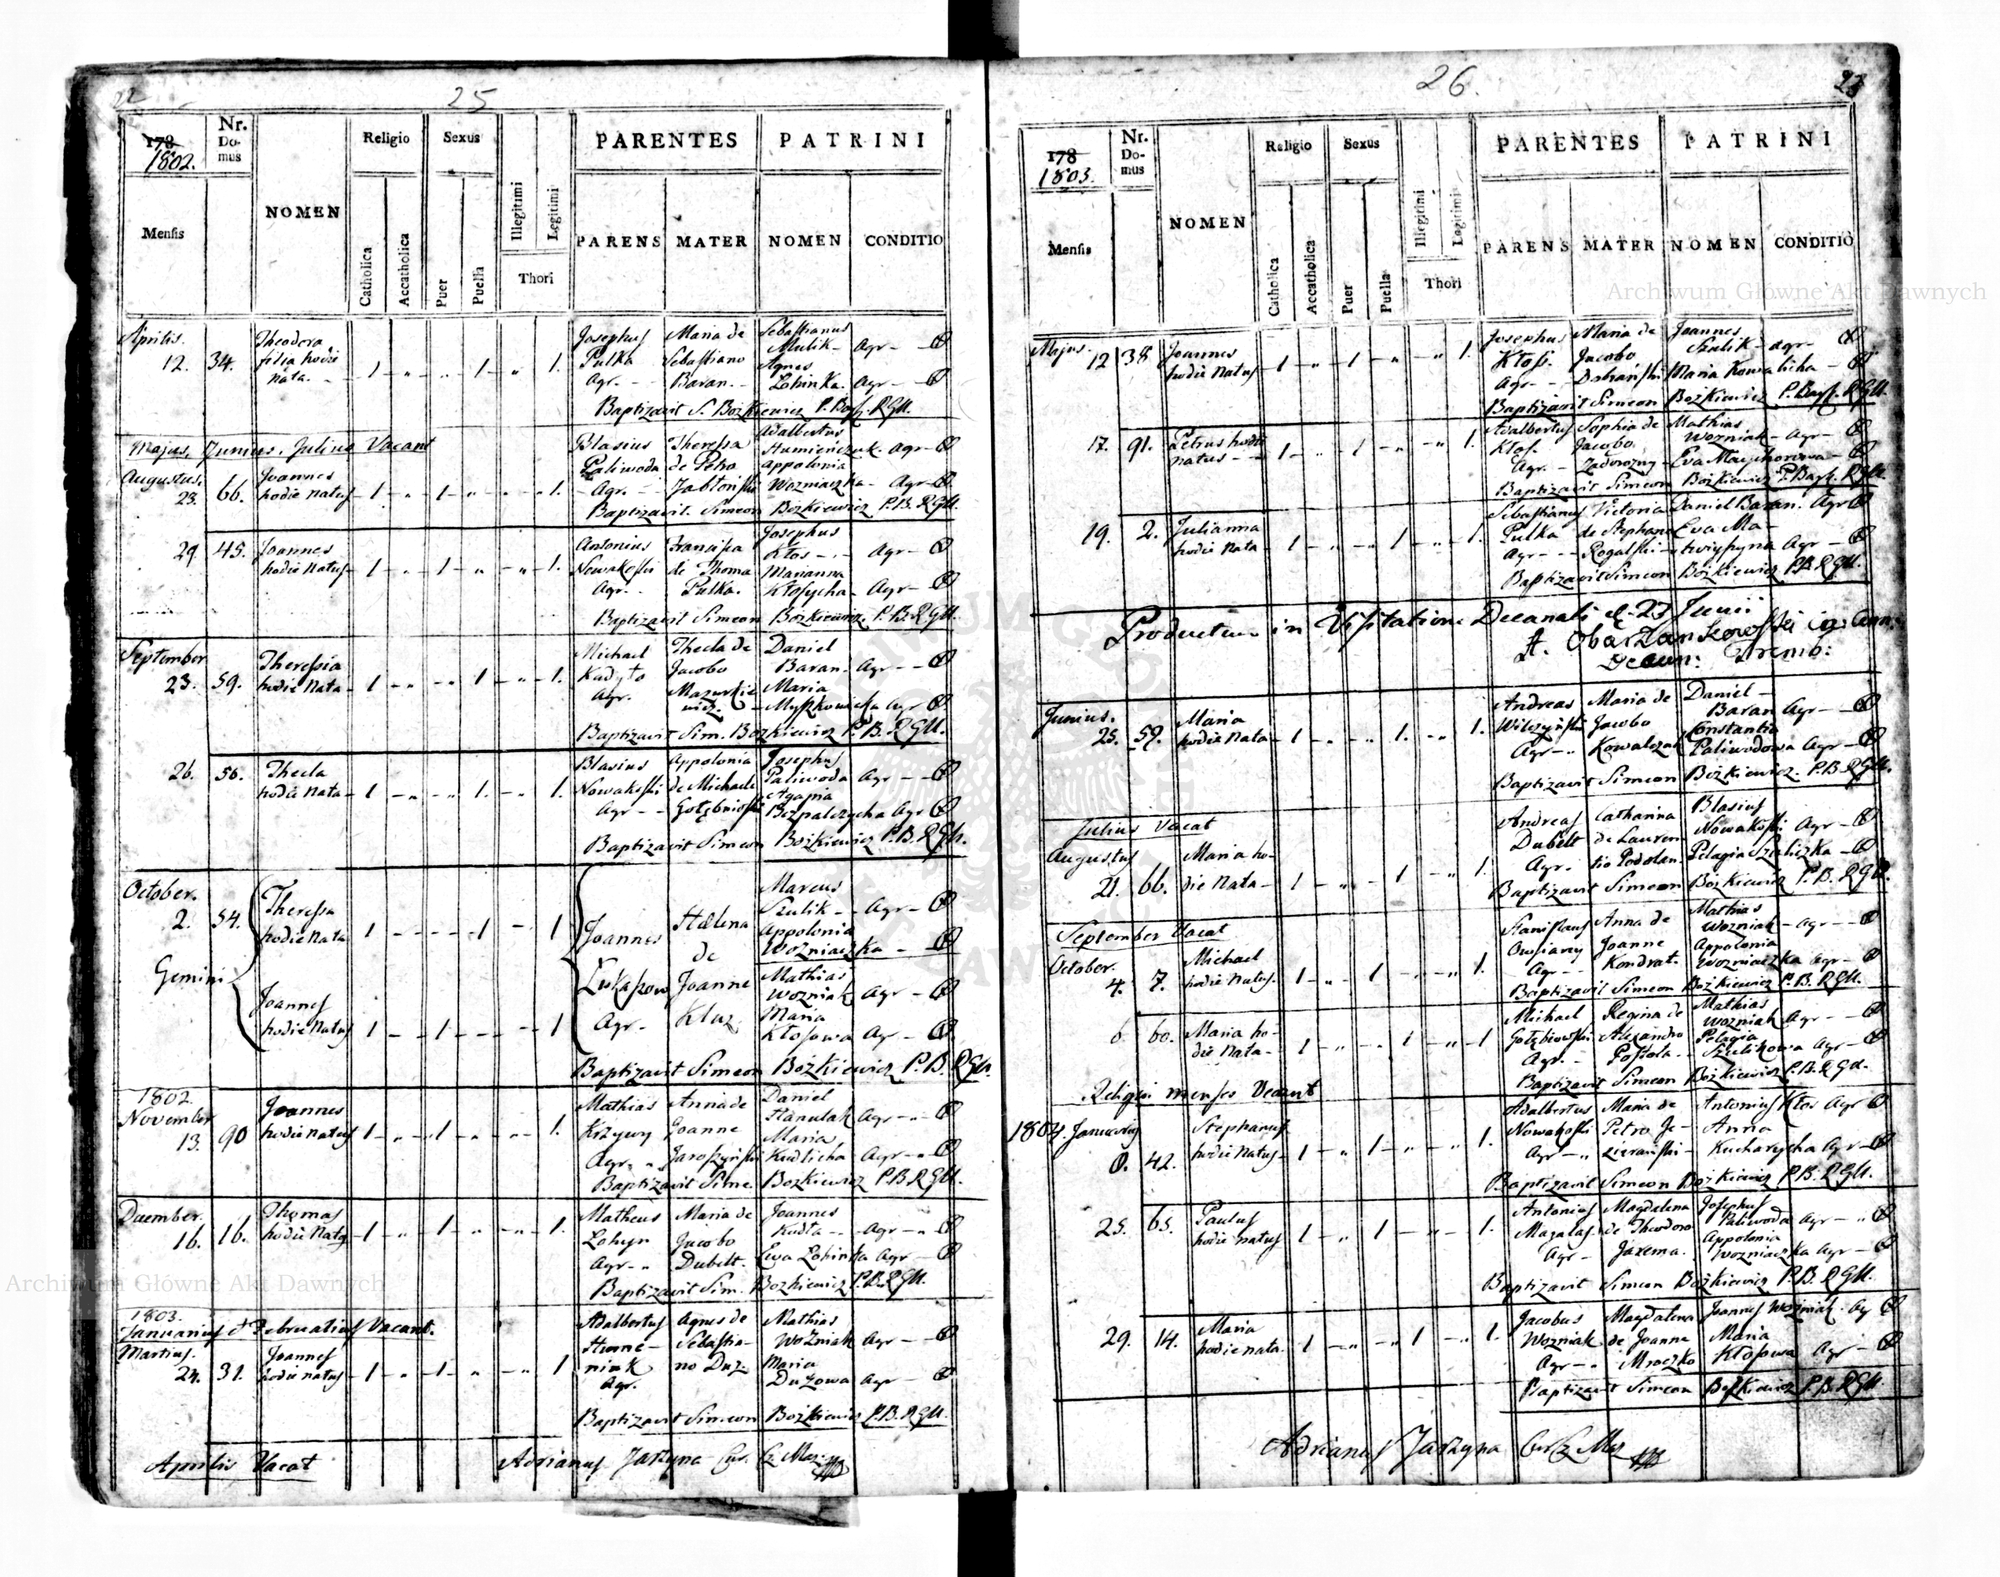 22
25
178
1802.
Nr. Domus
NOMEN
Religio
Sexus
PARENTES
PATRINI
Mensis
Catholica
Accatholica
Puer
Puella
Illegitimi
Legitimi
Thori
PARENS
MATER
NOMEN
CONDITIO
Aprilis.
12. 34. Theodora filia hodie nata. 1 1 1.
Josephus Pulka Agr. Maria de Sebastiano Baran.
Sebastianus Mulik Agr
Agnes Lohinka. Agr
Baptizavit S. Bożkiewicz P. Bas. R GU.
Majus, Junius, Julius Vacant
Augustus.
23. 66. Joannes hodie natus 1 1 1.
Blasius Paliwoda Agr. Theressa de Petro Jabłoński
Adalbertus Humieńczuk. Agr
Appolonia Wozniaczka Agr.
Baptizavit. Simeon Bożkiewicz P.B. R GU.
29 45. Joannes hodie natus 1 1 1.
Antonius Nowakoski Agr. Francisca de Thoma Pulka.
Josephus Kłos Agr
Marianna Kłosycha Agr
Baptizavit Simeon Bożkiewicz P.B. R GU.
September
23. 59. Theressia hodie nata 1 1 1.
Michael Kadyto Agr. Thecla de Jacobo Mazurkiewicz.
Daniel Baran. Agr
Maria Myszkowicka Agr
Baptizavit Sim. Bożkiewicz P.B. R GU.
26. 56. Thecla hodie nata 1 1. 1.
Blasius Nowakoski Agr Appolonia de Michaele Gołębnioski
Josephus Paliwoda Agr
Agapia Bezpalczycha Agr
Baptizavit Simeon Bożkiewicz P.B. R GU.
October.
2. 54. Theressa hodie nata 1 1 1
Gemini
Joannes hodie natus 1 1 1
Joannes Łukaszow Agr. Helena de Joanne Kluz
Marcus Szulik Agr
Appolonia Wozniaczka
Mathias Wozniak Agr
Maria Kłosowa Agr
Baptizavit Simeon Bożkiewicz P.B. R GU.
1802.
November
13. 90 Joannes hodie natus 1 1 1.
Mathias Krzywy Agr. Anna de Joanne Jaroszyński
Daniel Hanulak Agr
Maria Kudlicha Agr
Baptizavit Sime. Bożkiewicz P.B. R GU.
December.
16. 16. Thomas hodie natus 1 1 1.
Matheus Lohyn Agr. Maria de Jacobo Dubelt.
Joannes Kudła Agr
Eva Lohinka Agr
Baptizavit Sim. Bożkiewicz P.B. R GU.
1803.
Januarius et Februarius Vacant.
Martius.
24. 31. Joannes hodie natus 1 1 1
Adalbertus Humeniuk Agr. Agnes de Sebastiano Duz.
Mathias Wozniak Agr
Maria Duzowa Agr
Baptizavit Simeon Bożkiewicz P.B. R GU.
Aprilis Vacat
Adrianus Jarzyna Cur. Cz Mas.
26.
23
178
1803.
Nr. Domus
NOMEN
Religio
Sexus
PARENTES
PATRINI
Mensis
Catholica
Accatholica
Puer
Puella
Illegitimi
Legitimi
Thori
PARENS
MATER
NOMEN
CONDITIO
Majus.
12 38 Joannes hodie natus 1 1 1.
Josephus Kłos. Agr. Maria de Jacobo Dobrański
Joannes Szulik agr.
Maria Kowalicha
Baptizavit Simeon Bożkiewicz P. Bas. R GU.
17. 91. Petrus hodie natus 1 1 1.
Adalbertus Kłos. Agr. Sophia de Jacobo Zadorozny
Mathias Wozniak Agr
Eva Maychorowa
Baptizavit Simeon Bożkiewicz P. Bas. R GU.
19. 2. Julianna hodie nata 1 1 1.
Sebastianus Pulka Agr Victoria de Stephano Rogalski
Daniel Baran. Agr
Eva Agr
Baptizavit Simeon Bożkiewicz P.B. R GU.
Productum in Visitatione Decanali d. 23 Junii
A. Obarzankowski
Decan:
Junius.
25. 59. Maria hodie nata 1 1. 1.
Andreas Wilczyński Agr Maria de Jacobo Kowalczuk
Daniel Baran Agr
Constantia Paliwodowa Agr
Baptizavit Simeon Bożkiewicz. P.B. R GU.
Julius Vacat
Augustus
21. 66. Maria hodie nata 1 1 1.
Andreas Dubelt Agr. Catharina de Laurentio Podolan.
Blasius Nowakoski Agr
Pelagia Szaliczka
Baptizavit Simeon Bożkiewicz P.B. R GU.
September Vacat
October.
4. 7. Michael hodie natus. 1 1 1.
Stanislaus Owsiany Agr Anna de Joanne Kondrat.
Mathias Wozniak agr
Appolonia Wozniaczka Agr
Baptizavit Simeon Bożkiewicz P.B. R GU.
6 60. Maria hodie nata 1 1 1
Michael Gołębiowski Agr. Regina de Alexandro Postola
Mathias Wozniak Agr
Pelagia Szulikowa Agr
Baptizavit Simeon Bożkiewicz P.B. R GU.
Religi menses Vacant
1804. Januarius
8. 42. Stephanus hodie natus 1 1 1.
Adalbertus Nowakoski Agr Maria de Petro
Antonius Kłos Agr
Anna Kucharycha Agr
Baptizavit Simeon Bożkiewicz P.B. R GU.
25. 65. Paulus hodie natus 1 1 1.
Antonius Magalas Agr Magdalena de Theodoro Jarema.
Josephus Paliwoda Agr
Appolonia Wozniaczka Agr
Baptizavit Simeon Bożkiewicz P.B. R GU.
29. 14. Maria hodie nata 1 1 1.
Jacobus Wozniak Agr Magdalena de Joanne Mroczko
Joannes Wozniak. Ag
Maria Kłosowa Agr
Baptizavit Simeon Bożkiewicz P.B. R GU.
Adrianus Jarzyna Cur Cz Mas
Archiwum Główne Akt Dawnych
Archiwum Główne Akt Dawnych